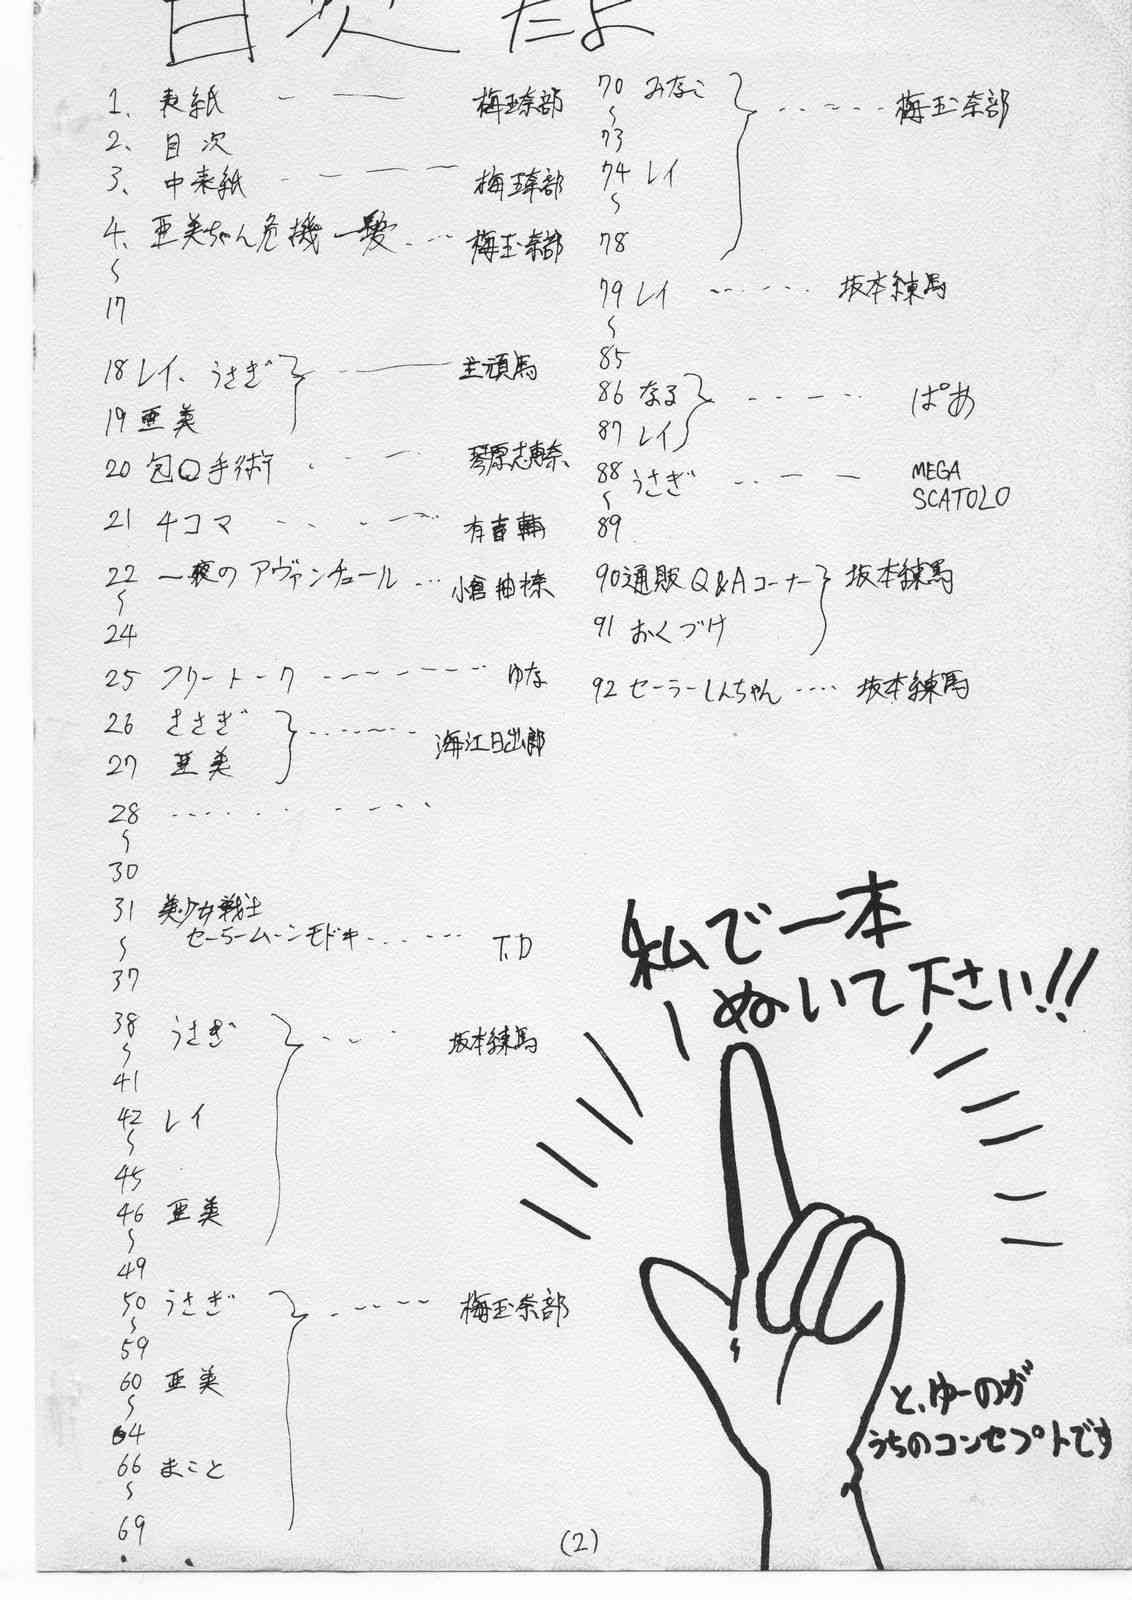 目次だよ
1、表紙 梅玉奈部
2、目次
3、中表紙 梅玉奈部
4、亜美ちゃん危機一髪 梅玉奈部
〜
17
18 レイ、うさぎ 主頑馬
19 亜美
20 包Q手術 琴原志恵奈
21 4コマ 有吉
22 一夜のアヴァンチュール 小倉柚榛
〜
24
25 フリートーク ゆな
26 うさぎ 海江日出郎
27 亜美
28
〜
30
31 美少女戦士
セーラームーンモドキ T.D
〜
37
38 うさぎ 坂本練馬
〜
41
42 レイ
〜
45
46 亜美
〜
49
50 うさぎ 梅玉奈部
〜
59
60 亜美
〜
64
66 まこと
〜
69
70 みなこ 梅玉奈部
〜
73
74 レイ
〜
78
79 レイ 坂本練馬
〜
85
86 なる ぱあ
87 レイ
88 うさぎ MEGA SCATOLO
〜
89
90 通販Q&Aコーナー 坂本練馬
91 おくづけ
92 セーラーしんちゃん 坂本練馬
私で一本
ぬいて下さい!!
と、ゆーのが
うちのコンセプトです
(2)